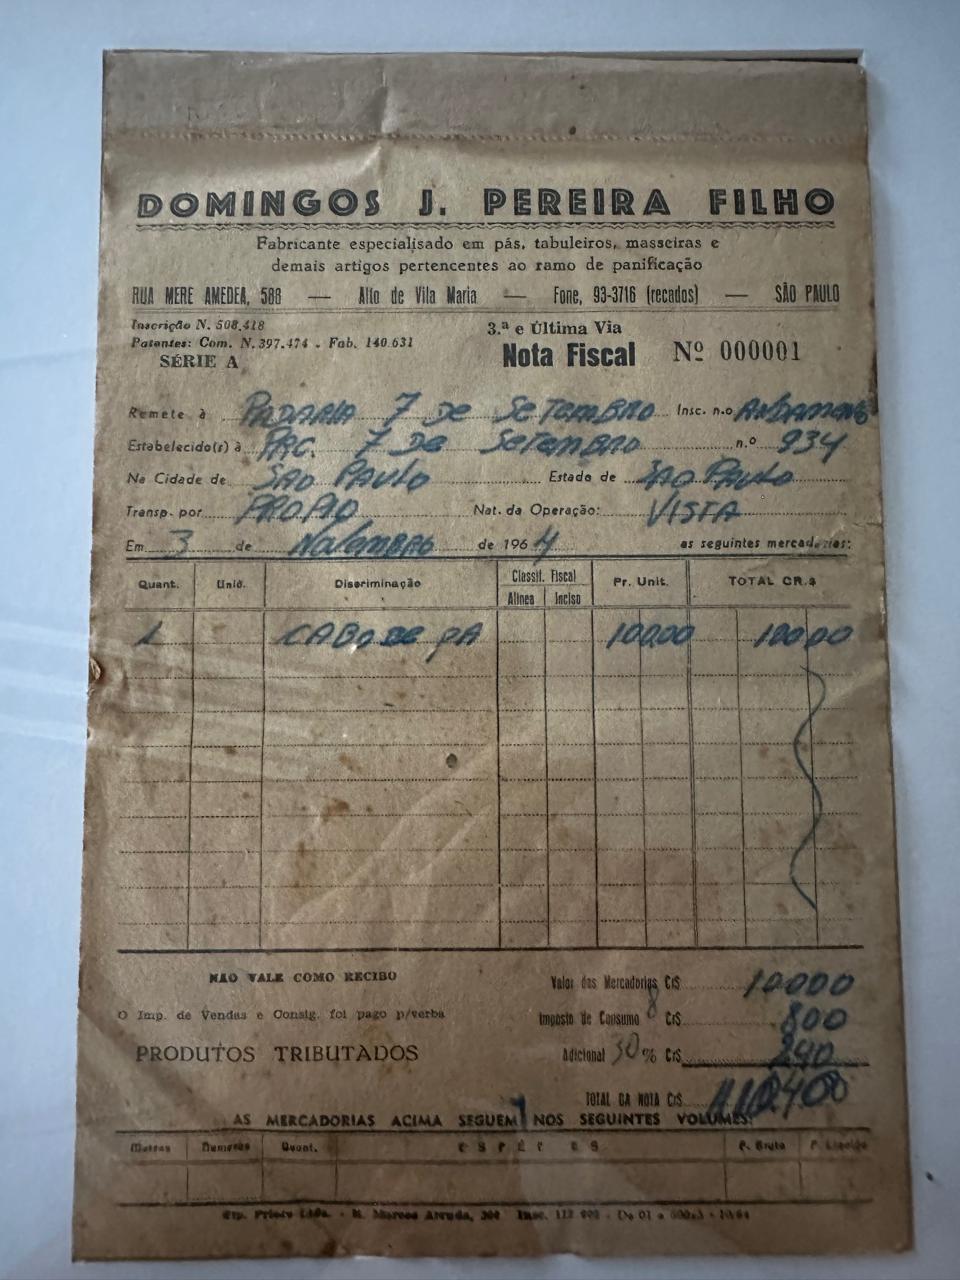 DOMINGOS J. PEREIRA FILHO
Fabricante especialisado em pás, tabuleiros, masseiras e
demais artigos pertencentes ao ramo de panificação
RUA MERE AMEDEA, 588 — Alto de Vila Maria — Fone, 93-3716 (recados) — SÃO PAULO
Inscrição N. 508.418
Patentes: Com. N. 397.474 - Fab. 140.631
SÉRIE A
3.ª e Última Via
Nota Fiscal Nº 000001
Remete à PADARIA 7 DE SETEMBRO Insc. n.o
Estabelecido(s) à PRC. 7 DE SETEMBRO n.º 934
Na Cidade de SÃO PAULO Estado de SÃO PAULO
Transp. por PROPIO Nat. da Operação: VISTA
Em 3 de NOVEMBRO de 1964 as seguintes mercadorias:
Quant. Unid. Discriminação Classif. Fiscal Alínea Inciso Pr. Unit. TOTAL CR.$
1 CABO DE PA 100,00 100,00
NÃO VALE COMO RECIBO
O Imp. de Vendas e Consig. foi pago p/verba
PRODUTOS TRIBUTADOS
Valor das Mercadorias Cr$ 100,00
Imposto de Consumo 8 Cr$ 8,00
Adicional 30% Cr$ 2,40
TOTAL DA NOTA Cr$ 110,40
AS MERCADORIAS ACIMA SEGUEM NOS SEGUINTES VOLUMES:
Marcas Numeros Quant. ESPÉCIES P. Bruto P. Liquido
Tip. Prieto Ltda. - R. Marcos Arruda,